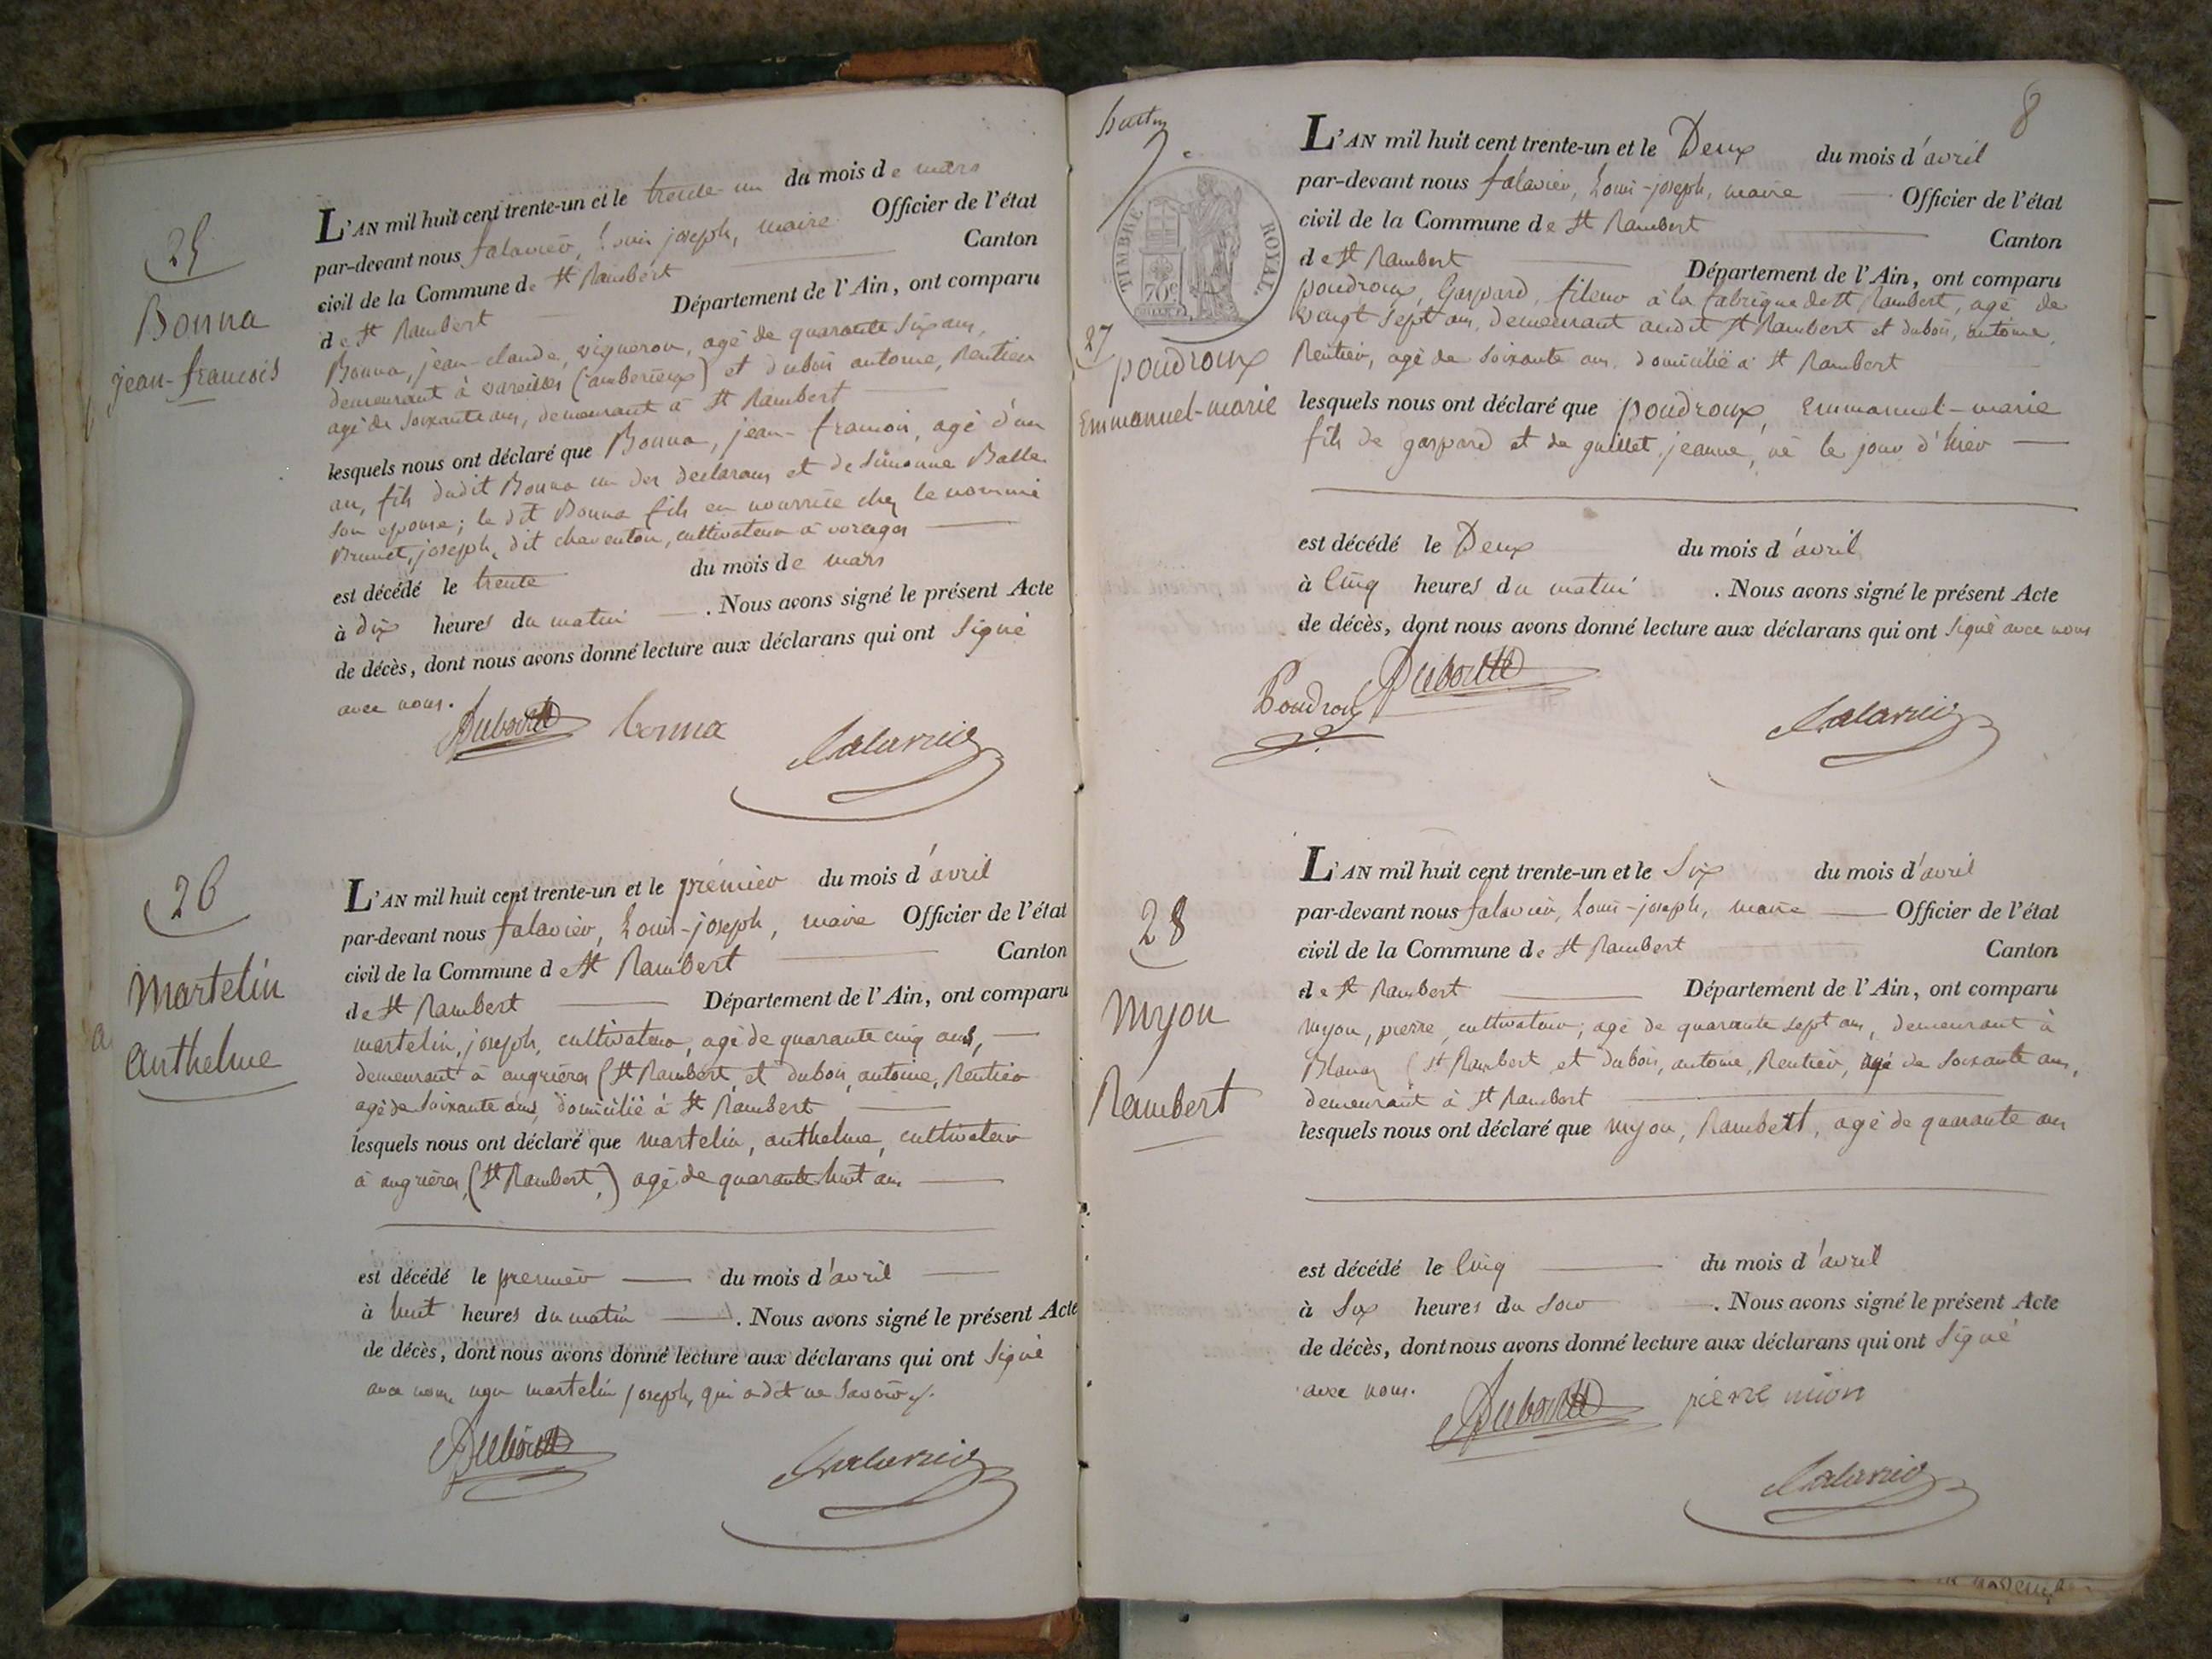 25
Bonna
jean-francois
L'AN mil huit cent trente-un et le trente-un du mois de mars
par-devant nous falavier, Louis joseph, maire Officier de l'état
civil de la Commune de St Rambert Canton
de St Rambert Département de l'Ain, ont comparu
Bonna, jean-claude, vigneron, agé de quarante six ans,
demeurant à vareilles (amberieux) et dubois antoine, Rentier
agé de soixante ans, demeurant à St Rambert
lesquels nous ont déclaré que Bonna, jean-francois, agé d'un
an, fils dudit Bonna un des declarans et de Simonne Balle
son epouse; le dit Bonna fils en nourrice chez le nommé
Brunet, joseph, dit charenton, cultivateur à vorages
est décédé le trente du mois de mars
à dix heures du matin . Nous avons signé le présent Acte
de décès, dont nous avons donné lecture aux déclarans qui ont signé
avec nous.
bonna
26
Martelin
anthelme
L'AN mil huit cent trente-un et le premier du mois d'avril
par-devant nous falavier, Louis-joseph, maire Officier de l'état
civil de la Commune de St Rambert Canton
de St Rambert Département de l'Ain, ont comparu
martelin, joseph, cultivateur, agé de quarante cinq ans,
demeurant à angrières (St Rambert, et dubois, antoine, Rentier
agé de soixante ans, domicilié à St Rambert
lesquels nous ont déclaré que martelin, anthelme, cultivateur
à angrières, (St Rambert,) agé de quarante huit ans
est décédé le premier du mois d'avril
à huit heures du matin . Nous avons signé le présent Acte
de décès, dont nous avons donné lecture aux déclarans qui ont signé
avec nous, non martelin joseph, qui a dit ne savoir.
8
TIMBRE ROYAL
70c
27
poudroux
Emmanuel-marie
L'AN mil huit cent trente-un et le Deux du mois d'avril
par-devant nous falavier, Louis-joseph, maire Officier de l'état
civil de la Commune de St Rambert Canton
de St Rambert Département de l'Ain, ont comparu
poudroux, Gaspard, fileur à la fabrique de St Rambert, agé de
vingt sept ans, demeurant audit St Rambert et dubois, antoine,
Rentier, agé de soixante ans, domicilié à St Rambert
lesquels nous ont déclaré que poudroux, Emmanuel-marie
fils de gaspard et de guillet, jeanne, né le jour d'hier
est décédé le Deux du mois d'avril
à Cinq heures du matin . Nous avons signé le présent Acte
de décès, dont nous avons donné lecture aux déclarans qui ont signé avec nous
Poudroux
28
Myon
Rambert
L'AN mil huit cent trente-un et le Six du mois d'avril
par-devant nous falavier, Louis-joseph, maire Officier de l'état
civil de la Commune de St Rambert Canton
de St Rambert Département de l'Ain, ont comparu
myon, pierre, cultivateur, agé de quarante sept ans, demeurant à
Blanaz (St Rambert et dubois, antoine, Rentier, agé de soixante ans,
demeurant à St Rambert
lesquels nous ont déclaré que myon, Rambert, agé de quarante ans
est décédé le Cinq du mois d'avril
à Six heures du soir . Nous avons signé le présent Acte
de décès, dont nous avons donné lecture aux déclarans qui ont signé
avec nous.
pierre mion